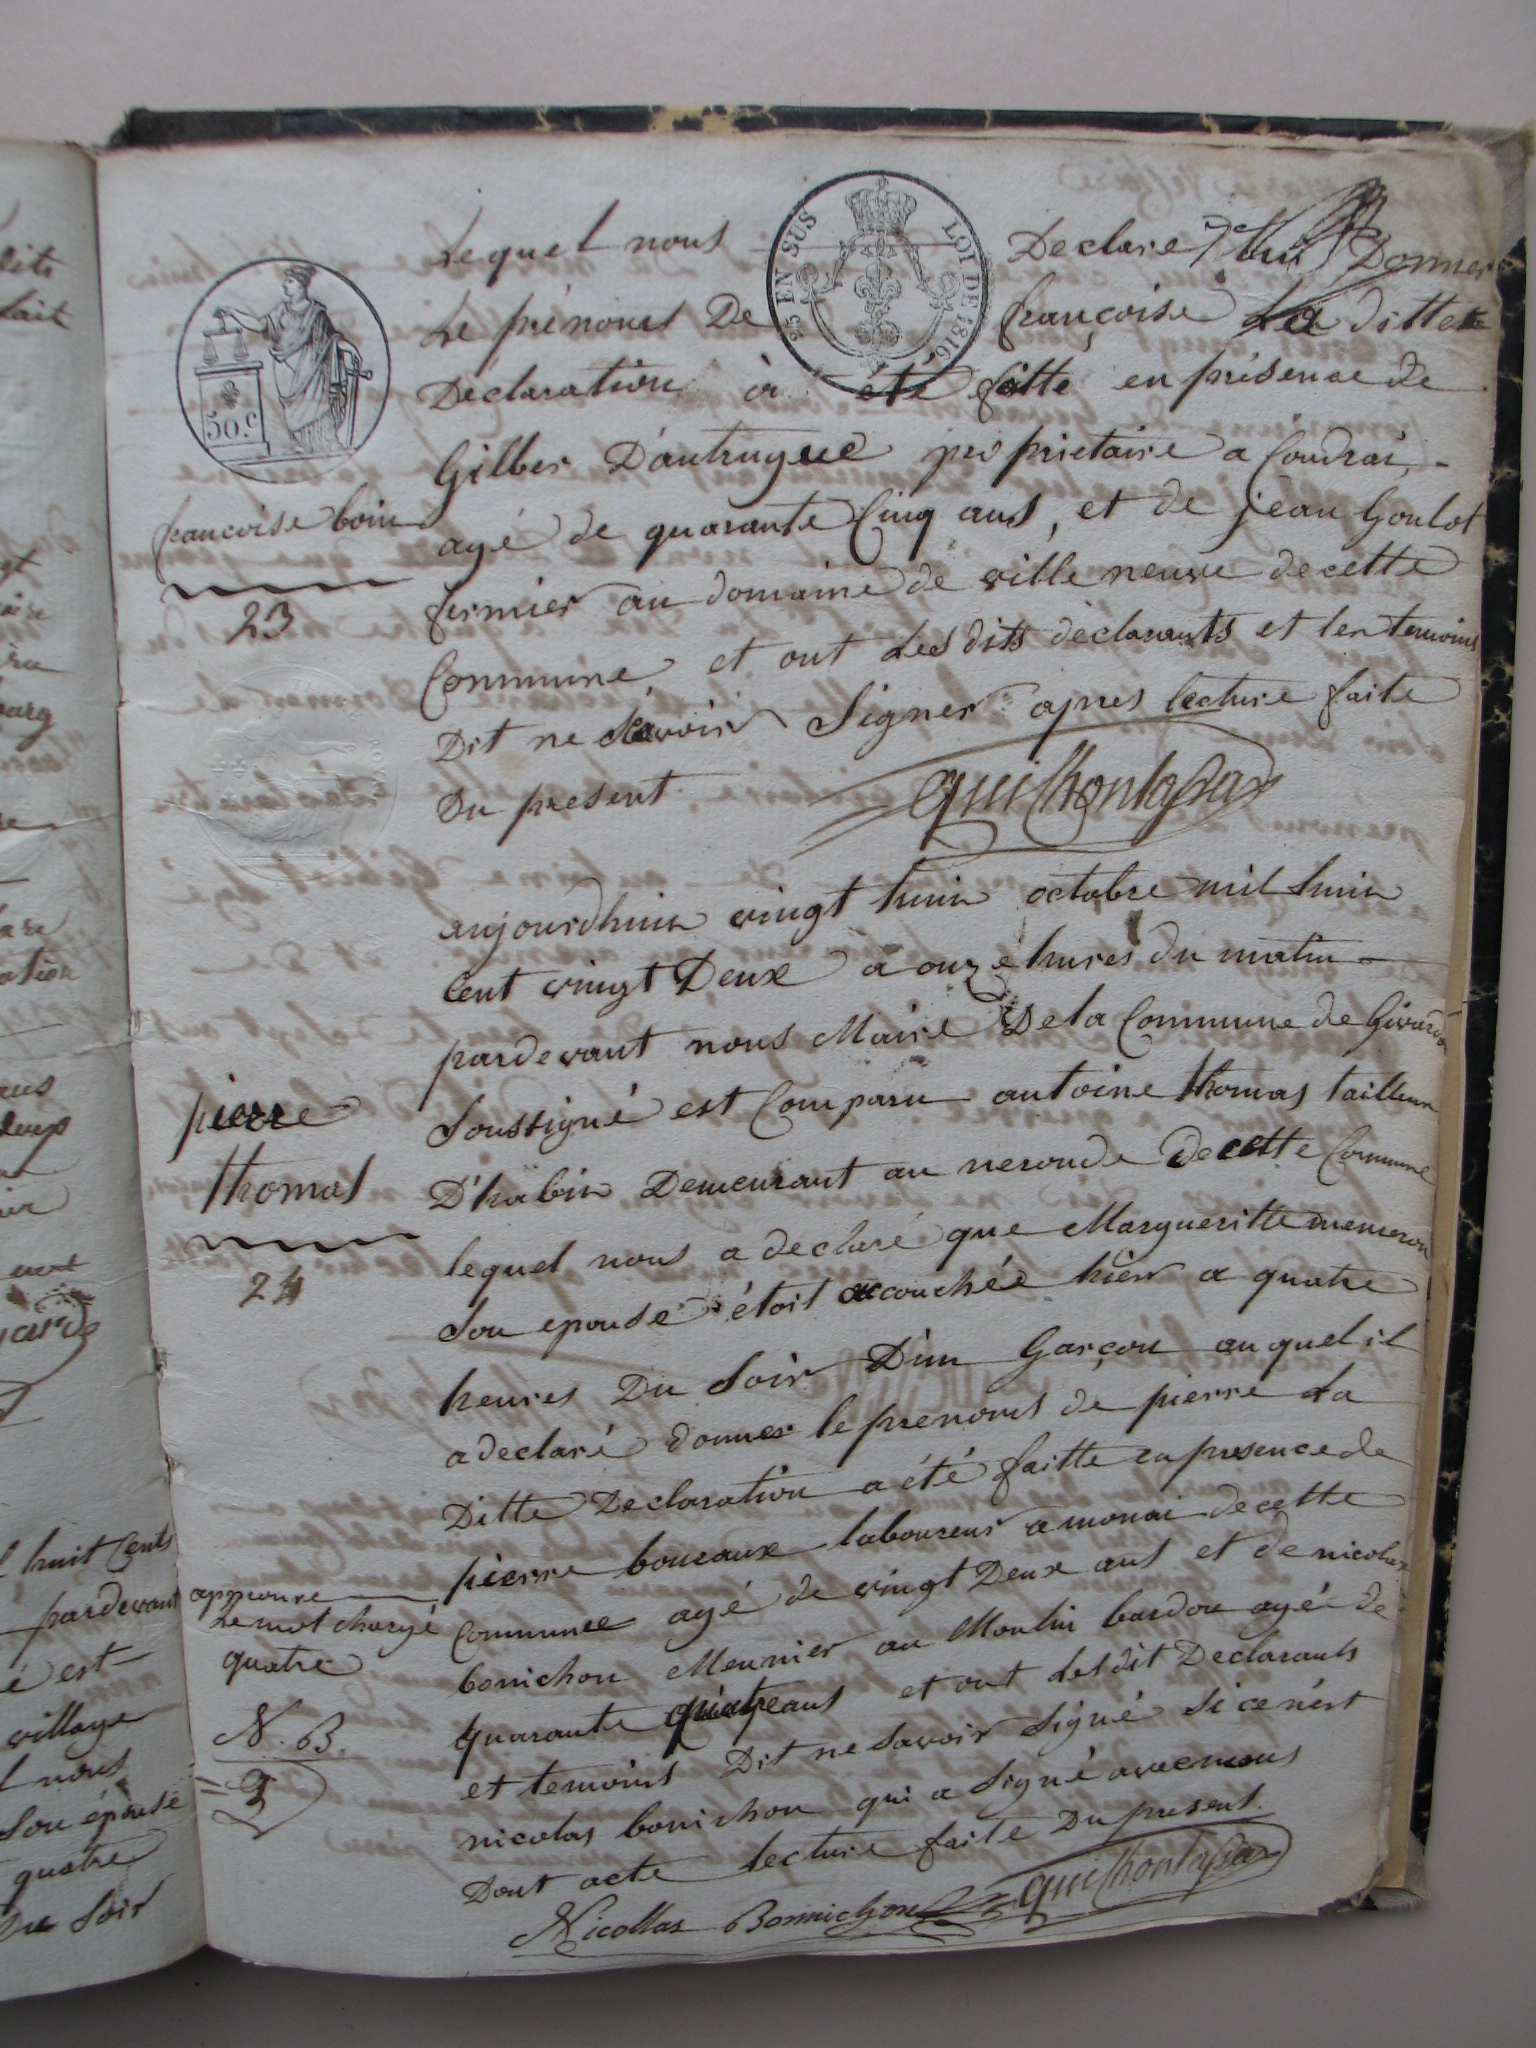 Lequel nous Declare lui Donner
Le prénoms De françoise La ditte
Déclaration à été faitte en présence de
Gilber Dautrugue propriétaire a Coudrai
agé de quarante Cinq ans, et de jean Goulot
fermier au domaine de ville neuve de cette
Commune et ont Lesdits déclarants et les temoins
Dit ne Savoir Signer apres lecture faite
Du present.
25 EN SUS LOI DE 1816
50.C
françoise boin
23
aujourdhuin vingt huin octobre mil huin
Cent vingt Deux a onze heures du matin
pardevant nous Maire De la Commune de
Soussigné est Comparu antoine thomas tailleur
D'habin Demeurant au neronde de cette Commune
lequel nous a declaré que Margueritte
Son epouse étoit accouchée hièr a quatre
heures Du Soir D'un Garçon auquel il
a declaré donner le prenoms de pierre La
Ditte Declaration a été faitte en presence de
pierre bouzaux laboureur a monai de cette
Commune agé de vingt Deux ans et de nicolas
bonichon Meunier au Moulin bardon agé de
quarante quatre ans et ont Lesdit Declarants
et temoins Dit ne Savoir Signé Si ce n'est
nicolas bonichon qui a Signé avec nous
Dont acte lecture faite Du present.
Nicollas Bonnichon
pierre
thomas
24
approuve
Le mot chargé
quatre
N. B.
huit Cents
pardevant
é est
village
nous
Son épouse
quatre
Du Soir